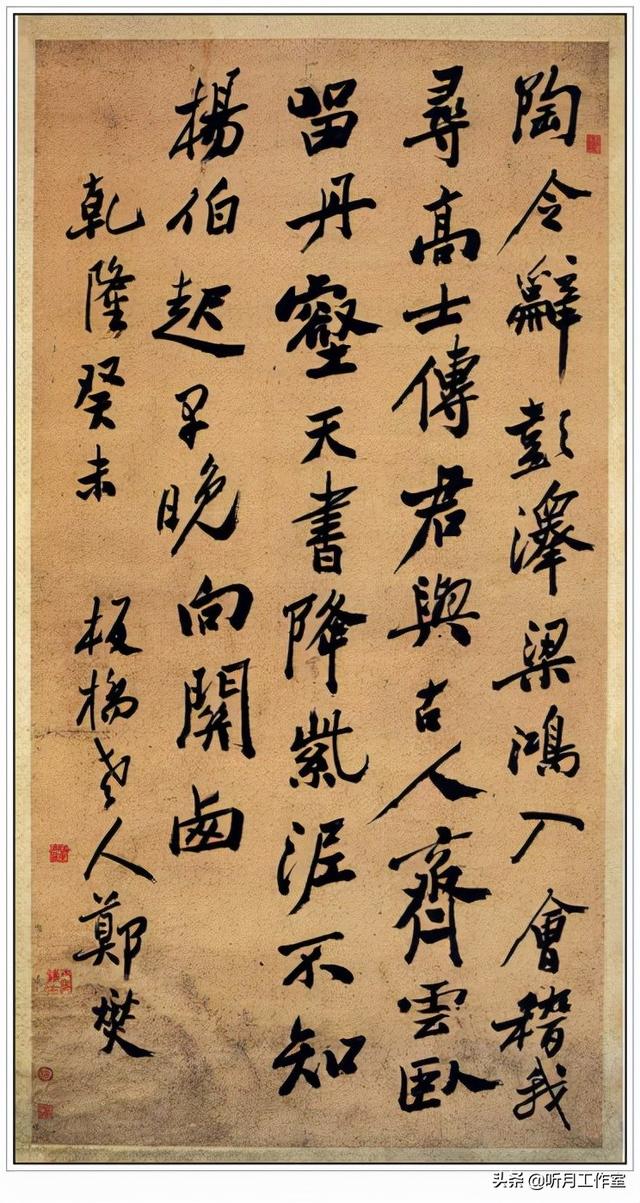 陶令辭彭澤梁鴻入會稽我
尋高士傳君與古人齊雲臥
留丹壑天書降紫泥不知
楊伯起早晚向關卥
乾隆癸未 板橋老人鄭燮
头条 @听月工作室